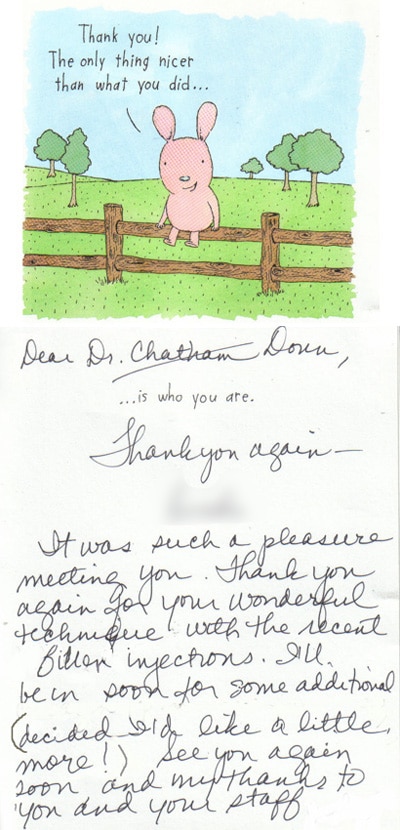 Thank you!
The only thing nicer
than what you did...
Dear Dr. Chatham Donn,
...is who you are.
Thank you again—
It was such a pleasure
meeting you. Thank you
again for your wonderful
technique with the recent
filler injections. I'll
be in soon for some additional
(decided I'd like a little
more!) See you again
soon and my thanks to
you and your staff